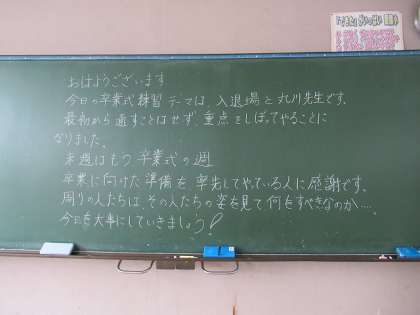 おはようございます
今日の卒業式練習テーマは、入退場と丸川先生です。
最初から通すことはせず、重点をしぼってやることに
なりました。
来週はもう卒業式の週
卒業に向けた準備を率先してやっている人に感謝です。
周りの人たちは、その人たちの姿を見て何をすべきなのか….
今日を大事にしていきましょう!